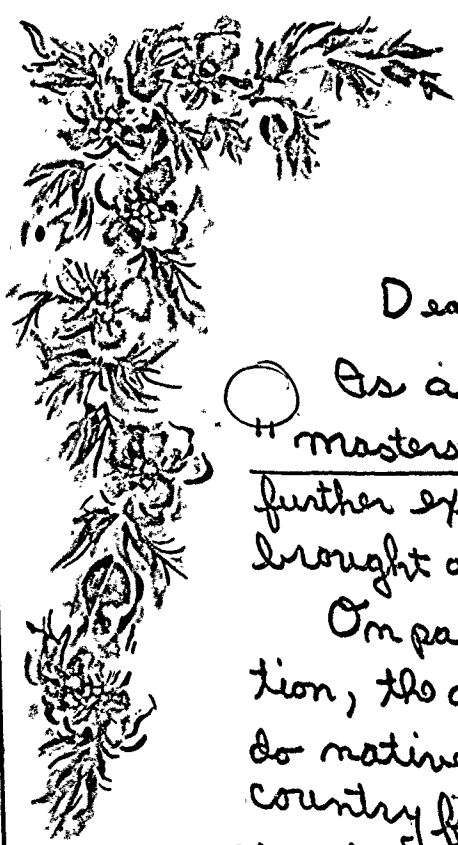 Dea
As a
"masters
further ex
brought a
On pa
tion, the a
do native
country f